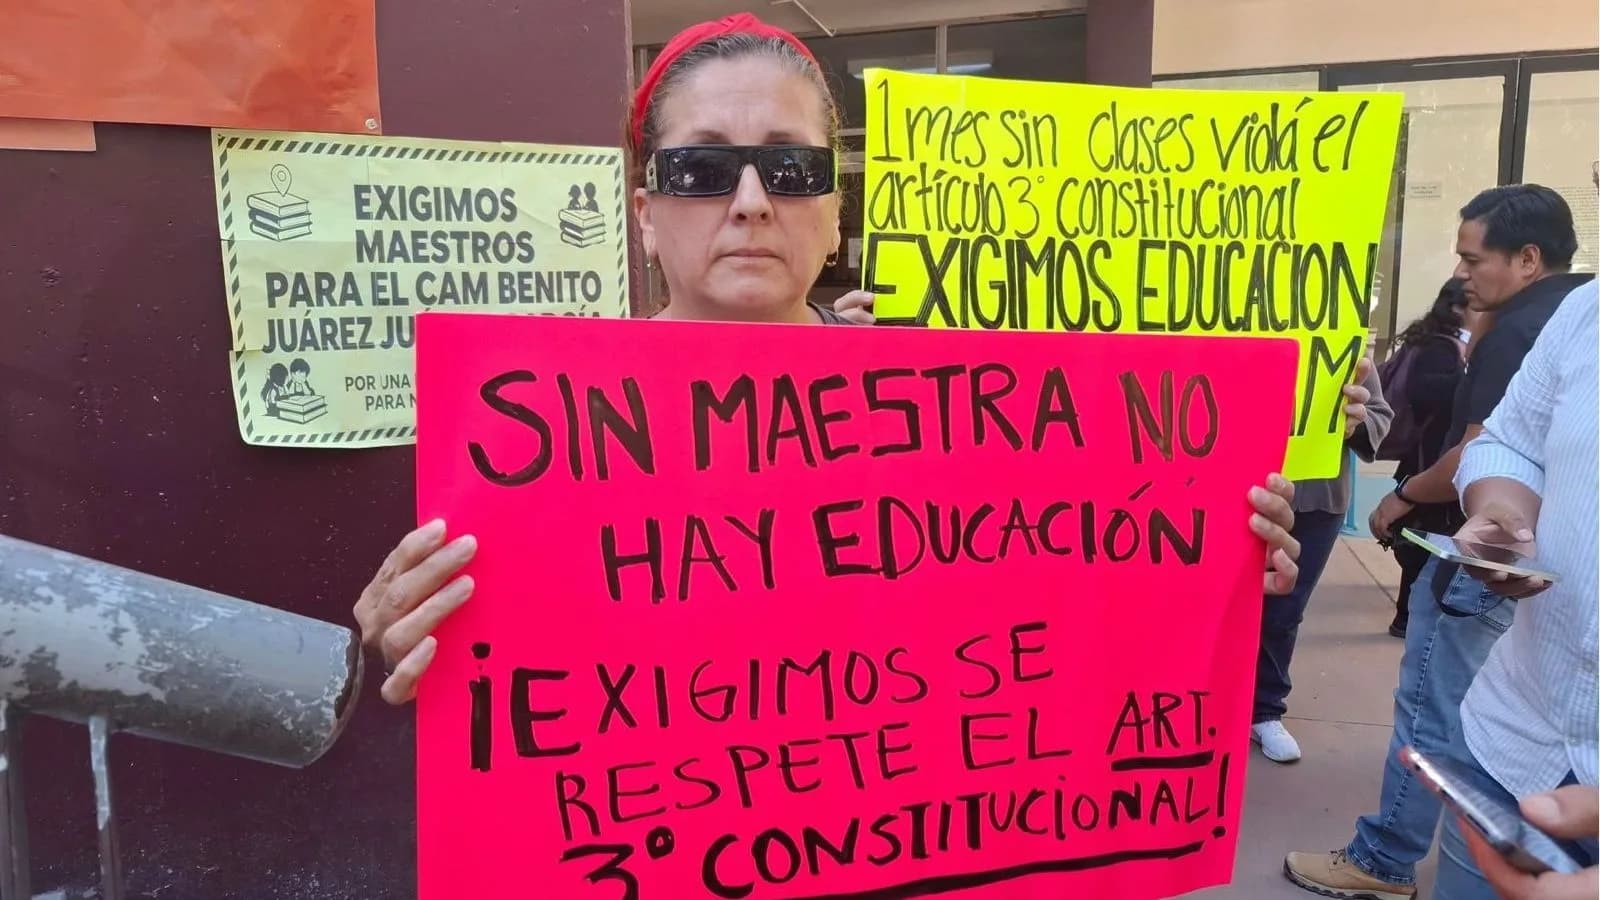 EXIGIMOS
MAESTROS
PARA EL CAM BENITO
JUÁREZ
POR UNA
PARA
1 mes sin clases violá el
artículo 3° constitucional
EXIGIMOS EDUCACION
SIN MAESTRA NO
HAY EDUCACIÓN
¡EXIGIMOS SE
RESPETE EL ART.
3° CONSTITUCIONAL!